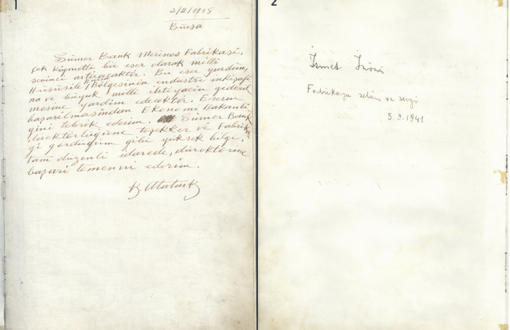 1
2/2/1938
Bursa
Sümer Bank Merinos Fabrikası,
çok kıymetli bir eser olarak milli
sevinci artıracaktır. Bu eser yurdun,
Hususile Bölgesinin endustri inkişafı-
na ve büyük milli ihtiyacın gideril-
mesine yardım edecektir. Eserin
başarılmasından Ekonomi Bakanlı-
ğını tebrik ederim. Sümer Bank
direktörlüğüne teşekkür ve Fabrika-
yi gördüğüm gibi yüksek bilge,
tam düzenli idarede, direktörüne
başarı temenni ederim.
K. Atatürk
2
İsmet İnönü
Fabrikaya selâm ve sevgi
5.9.1941